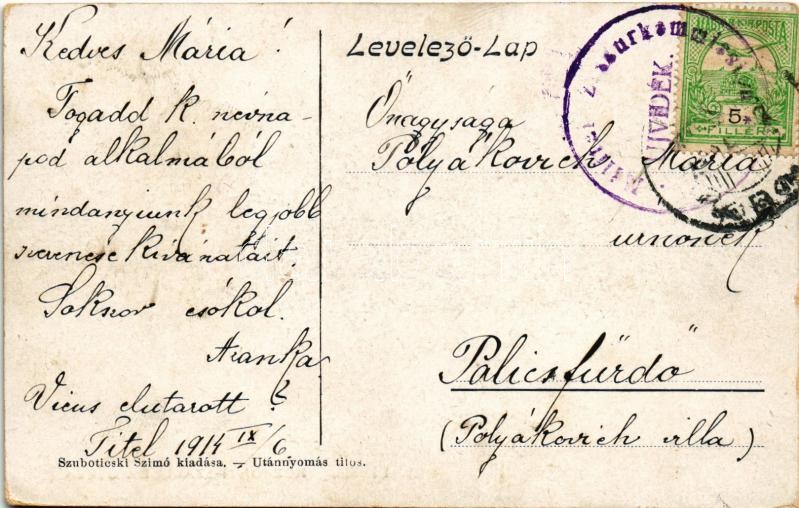 Kedves Mária!
Fogadd k. névna-
pod alkalmából
mindanyiunk legjobb
szerencse kivánatait.
Sokszor csókol.
Aranka
Vicus elutazott?
Titel 1914 IX/6
Szuboticski Szimó kiadása. — Utánnyomás tilos.
Levelező-Lap
Őnagysága
Polyákovich Mária
urnőnek
Palicsfürdő
(Polyákovich villa)
MAGYAR KIR. POSTA
5
FILLÉR
ÚJVIDÉK.